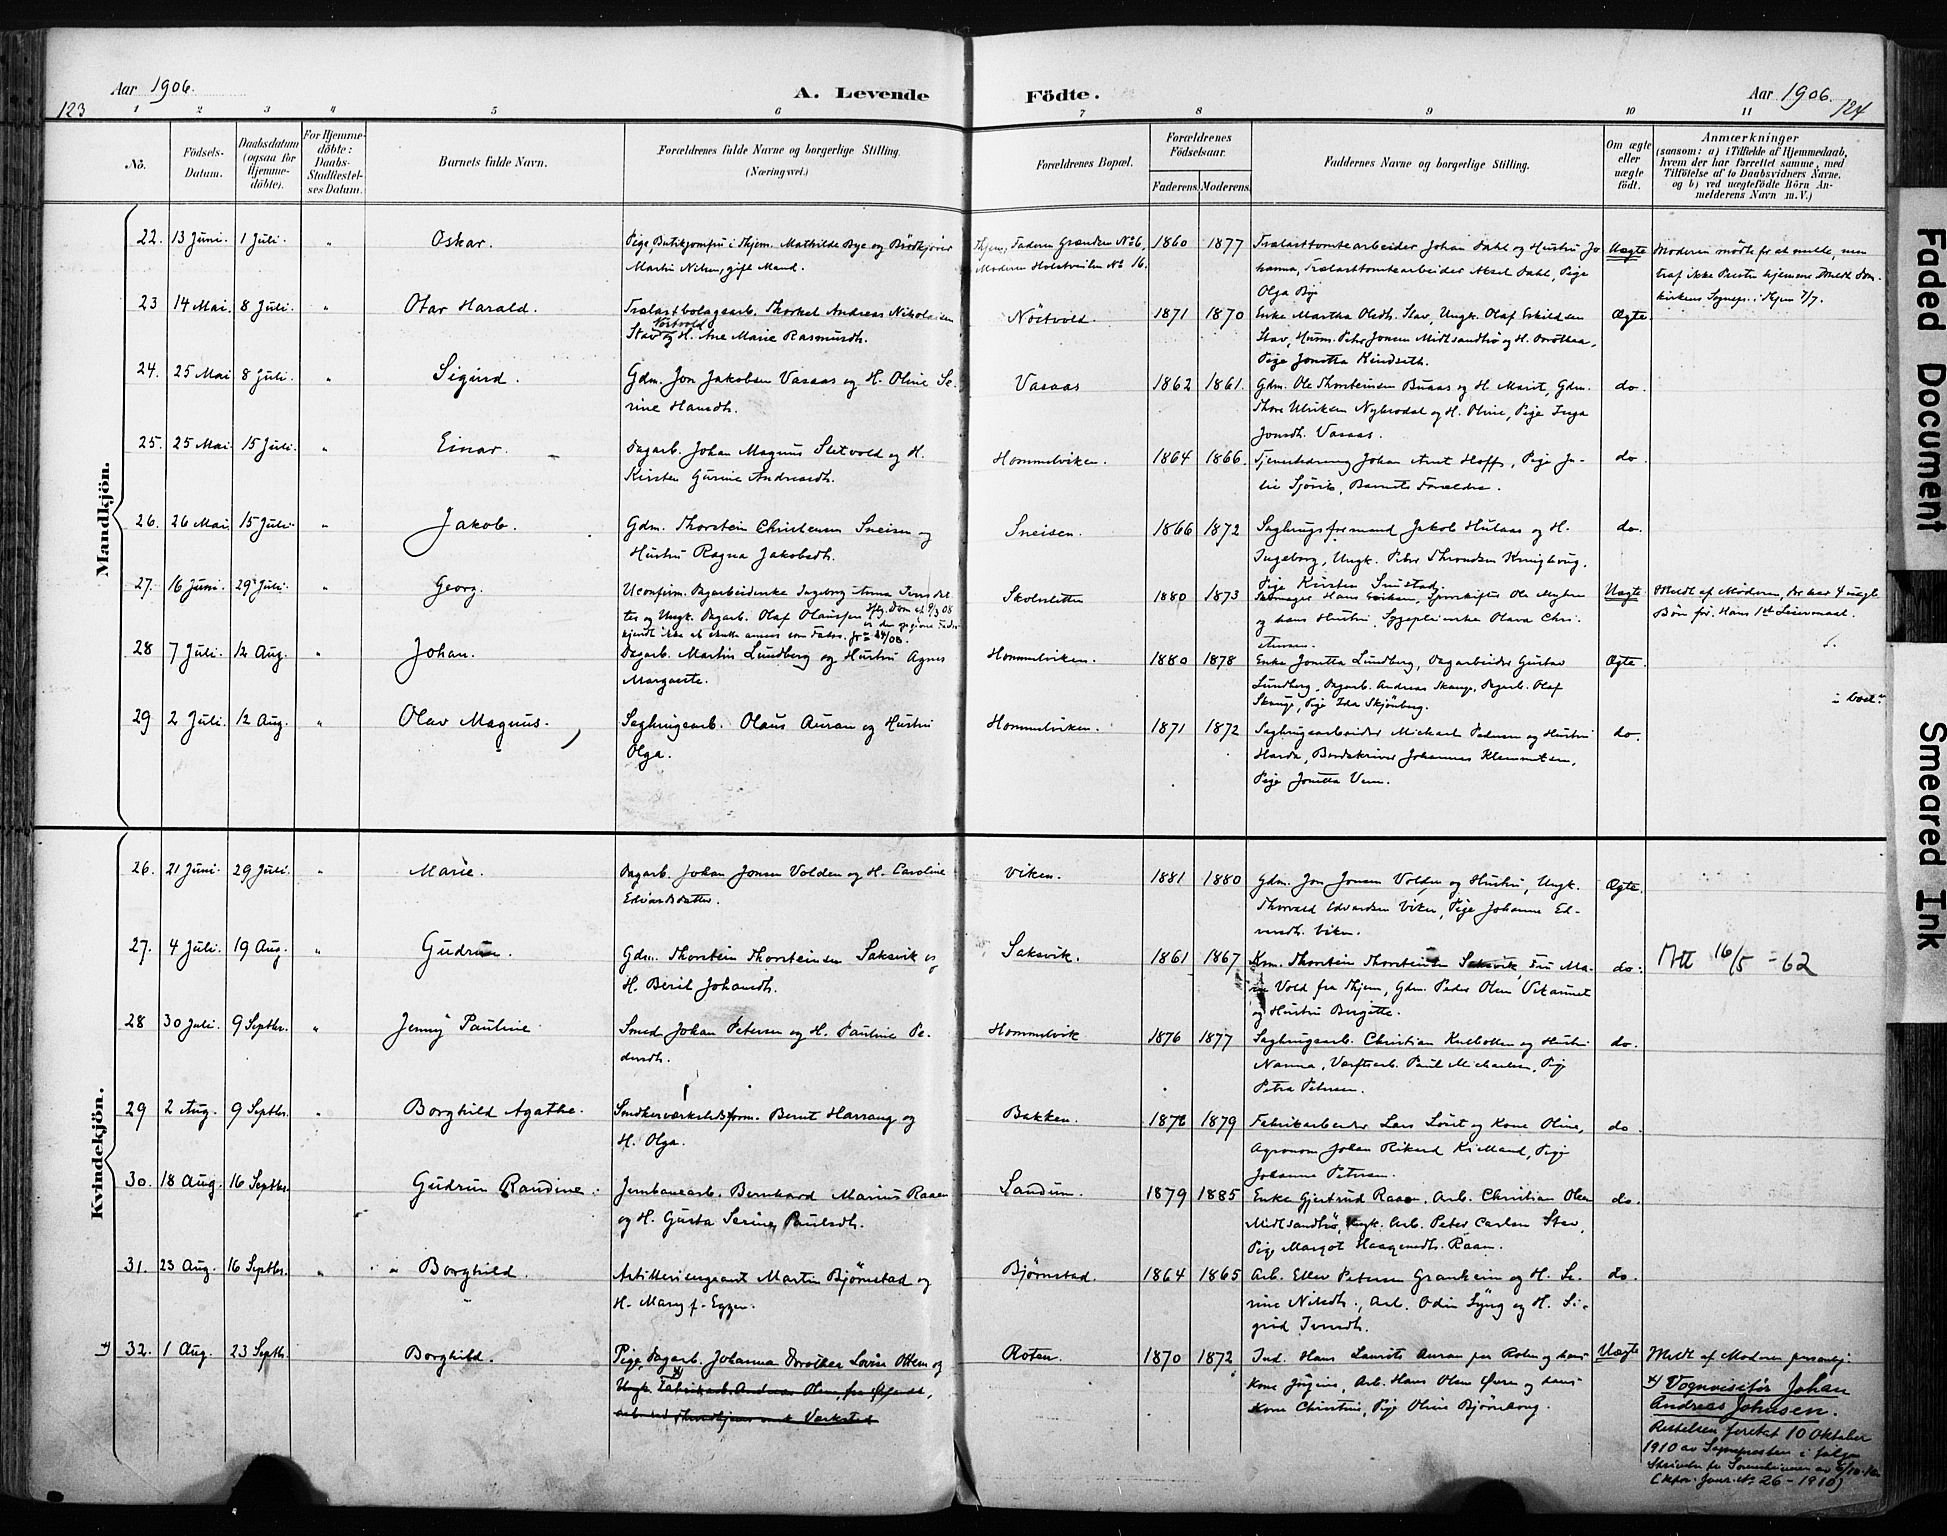 Aar 1906.
A. Levende Födte.
Aar 1906.
123
124
1 2 3 4 5 6 7 8 9 10 11
No.
Födsels-Datum.
Daabsdatum (ogsaa for Hjemmedöbte).
For Hjemmedöbte: Daabs-Stadfæstelses Datum.
Barnets fulde Navn.
Forældrenes fulde Navne og borgerlige Stilling. (Næringsvei.)
Forældrenes Bopæl.
Forældrenes Födselsaar.
Faderens. Moderens.
Faddernes Navne og borgerlige Stilling.
Om ægte eller uægte födt.
Anmærkninger
(saasom: a) i Tilfælde af Hjemmedaab, hvem der har forrettet samme, med Tilföielse af to Daabsvidners Navne. og b) ved uægtefödte Börn Anmelderens Navn m. V.)
Mandkjön.
22. 13 Juni. 1 Juli. " Oskar. Pige, Butikjomfru i Thjem. Mathilde Bye og Brödkjører
Martin Nilsen, gift Mand.
Thjem, Faderen Grænden No 6, Moderen No 16. 1860 1877 Trælasttomtearbeider Johan Dahl og Hustru Johanna, Trælasttomtearbeider Aksel Dahl, Pige
Olga Bye
Uægte Moderen mødte for at melde, men
traf ikke Presten hjemme. Anmeldt Domkirkens Sognepr. i Thjem 7/7.
23 14 Mai. 8 Juli. " Otar Harald. Trælastbolagsarb. Thorkel Andreas Nikolaisen
Stav og H. Ane Marie Rasmusdt.
Nöstvold. 1871 1870 Enke Martha Olsdt. Stav, Ungk. Olaf Eskildsen
Stav, Husm. Peter Jonsen Midtsandtrø og H. Dorothea,
Pige Jonetta Kindseth.
Ægte.
24. 25 Mai 8 Juli. " Sigurd. Gdm. Jon Jakobsen Vasaas og H. Oline Serine Hansdt.
Vasaas 1862 1861. Gdm. Ole Thorsteinsen Buaas og H. Marit, Gdm.
Thore Ulriksen Nybrodal og H. Oline, Pige Inga
Jonsdt. Vasaas.
do.
25. 25 Mai 15 Juli. " Einar. Dagarb. Johan Magnus Sletvold og H.
Kirsten Gurine Andreasdt.
Hommelviken. 1864 1866. Johan Arnt Hoff, Pige Julie, Barnets Forældre.
do.
26. 26 Mai. 15 Juli. " Jakob. Gdm. Thorstein Christensen Sneisen og
Hustru Ragna Jakobsdt.
Sneisen. 1866 1872 Sagbrugsformand Jakob Hulaas og H.
Ingeborg, Ungk. Peter Thronsden
Pige Kirsten
do.
27. 16 Juni. 29 Juli. " Georg. Uconfirm. Dagarbeiderske Ingeborg Anna Iversdatter og Ungk. Dagarb. Olaf Olaussen
Skolesletten 1880 1873 Skomager Hans Eriksen,
og hans Hustru, Sygepleierske Olava Christensen.
Uægte Meldt af Moderen, der har 4 uægte
Børn før. Hans 1st
28 7 Juli. 12 Aug. " Johan. Dagarb. Martin Lundberg og Hustru Agnes
Margarete.
Hommelviken. 1880 1878 Enke Jonetta Lundberg, Dagarbeider Gustav
Lundberg, Dagarb. Andreas Skauge, Dagarb. Olaf
Skauge, Pige Ida Skjönberg.
Ægte
29 2 Juli. 12 Aug. " Olav Magnus. Sagbrugsarb. Olaus Auran og Hustru
Olga.
Hommelviken. 1871 1872 Sagbrugsarbeider Michael Pedersen og Hustru
Harda, Bordskriver Johannes Klemmetsen,
Pige Jonetta Venn.
do.
Kvindekjön.
26. 21 Juni. 29 Juli. " Marie. Dagarb. Johan Jonsen Volden og H. Caroline
Edvardsdatter.
Viken. 1881 1880 Gdm. Jon Jonsen Volden og Hustru, Ungk.
Thorvald Edvardsen Viken, Pige Johanne Edvardsdt. Viken.
Ægte.
27. 4 Juli. 19 Aug. " Gudrun. Gdm. Thorstein Thorsteinsen Saksvik og
H. Beril Johansdt.
Saksvik. 1861 1867 Krm. Thorstein Thorsteinsen Saksvik, Fru Marie Vold fra Thjem, Gdm. Peder Olsen Vikaunet
og Hustru Birgitte.
do. Att 16/5 - 62
28 30 Juli. 9 Septbr. " Jenny Pauline Smed Johan Petersen og H. Pauline Pedersdt.
Hommelvik 1876 1877 Sagbrugsarb. Christian og Hustru
Nanna, Værftsarb. Paul Michaelsen, Pige
Petra Petersen.
do.
29 2 Aug. 9 Septbr. " Borghild Agathe. Snedkerværkstedsform. Bernt Harsang og
H. Olga.
Bakken. 1879 Fabrikarbeider Lars og Kone Oline,
Agronom Johan Rikard Kielland, Pige
Johanne Petersen.
do.
30. 18 Aug. 16 Septbr. Gudrun Randine. Jernbanearb. Bernhard Marius Raaen
og H. Gusta Serine Paulsdt.
Sandum. 1879 1885 Enke Gjertrud Raaen, Arb. Christian Olsen
Midtsandtrø, Ungk. Arb. Peter Carlsen Stav,
Pige Margot Haagensdt. Raaen.
do.
31. 23 Aug. 16 Septbr. " " Borghild. Artillerisergeant Martin Bjørnstad og
H. Mary f. Eggen.
Bjørnstad. 1864 1865 Arb. Eller Petersen Grankein og H. Serine Nilsdt., Arb. Odin og H. Sigrid Iversdt.
do.
32. 1 Aug. 23 Septbr. Borghild. Pige, Dagarb. Johanna Dorothea Lovise Olsen og
Ungk. Fabrikarb. Andreas Olsen, fra
arb. ved Throndhjems mek Værksted
Roten. 1870 1872 Ind. Hans Laurits Auran pr Roten og hans
Kone Jörgine, Arb. Hans Olsen Øvre og hans
Kone Christine, Pige Oline Bjørnbong.
Uægte Meldt af Moderen personlig.
x) Vognvisitør Johan
Andreas Johnsen.
Rettelsen foretat 10 Oktober
1910 av Sognepresten i følge
Skrivelse fr
(Jour. No 26 - 1910)
Faded Document
Smeared Ink